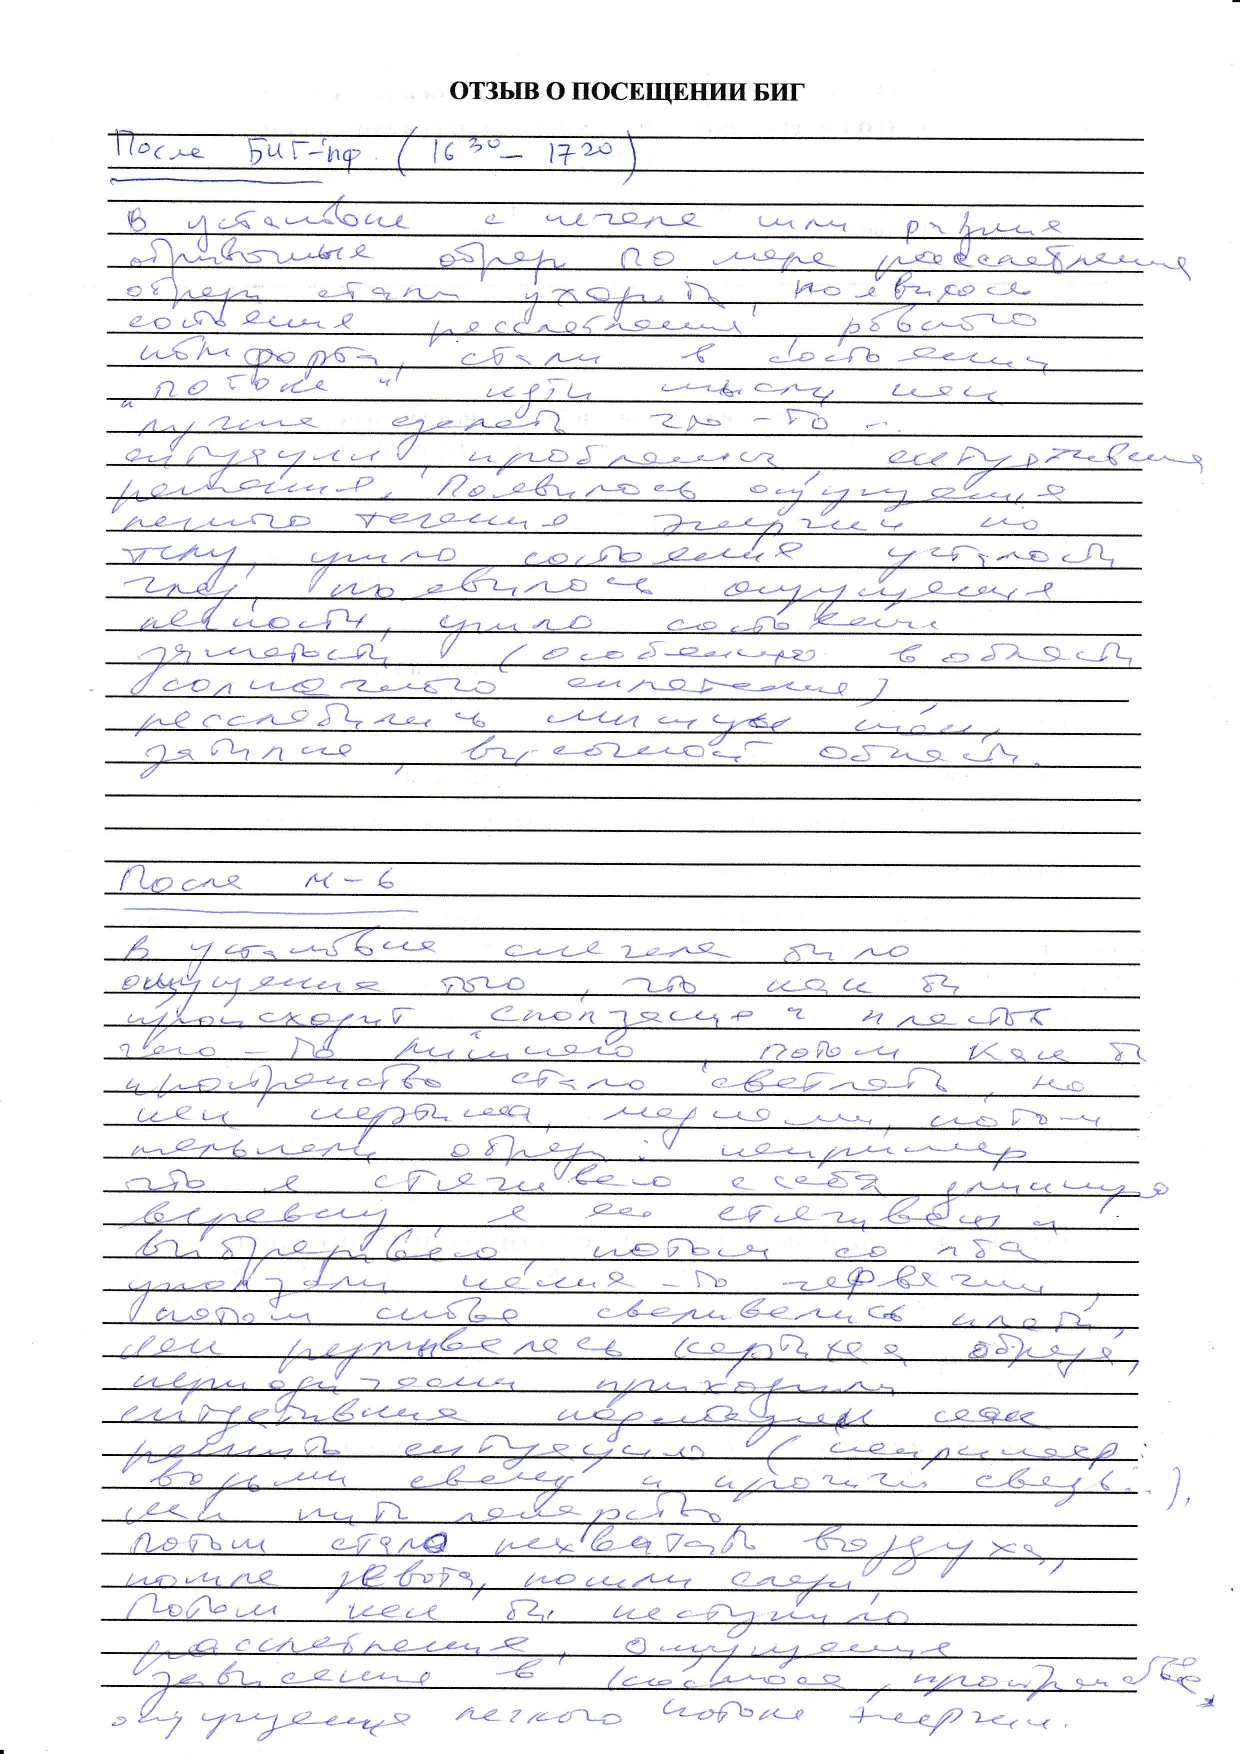 ОТЗЫВ О ПОСЕЩЕНИИ БИГ
После БИГ-пф. (16 30 – 17 20)
В установке с начала шли разные
обрывочные образы по мере расслабления
образы стали уходить, появилось
состояние расслабления, ровного
комфорта, стали в состоянии
"потока" идти мысли как
лучше сделать что-то –
ситуации, проблемы, ситуативные
решения. Появилось ощущение
легкого течения энергии по
телу, ушло состояние усталости
глаз, появилось ощущение
легкости, ушло состояние
зажатости (особенно в области
солнечного сплетения),
расслабились мышцы шеи,
затылка, височной области.
После М-6
В установке сначала было
ощущение того, что как бы
происходит "сползание" пластов
чего-то лишнего, потом как бы
пространство стало светлеть, но
как потом
мелькали образы: например
что я стягиваю с себя длинную
веревку, я её стягиваю и
выбрасываю, потом со лба
уползали какие-то червячки,
потом сваливались
как размывалась картинка образа,
периодически приходили
ситуативные подсказки как
решить ситуацию (например:
возьми свечу и прочитай связь...),
как пить лекарство
потом стало нехватать воздуха,
пошла зевота, пошли слезы,
потом как бы наступило
расслабление, ощущение
зависания в космосе, пространстве,
ощущение легкого потока энергии.